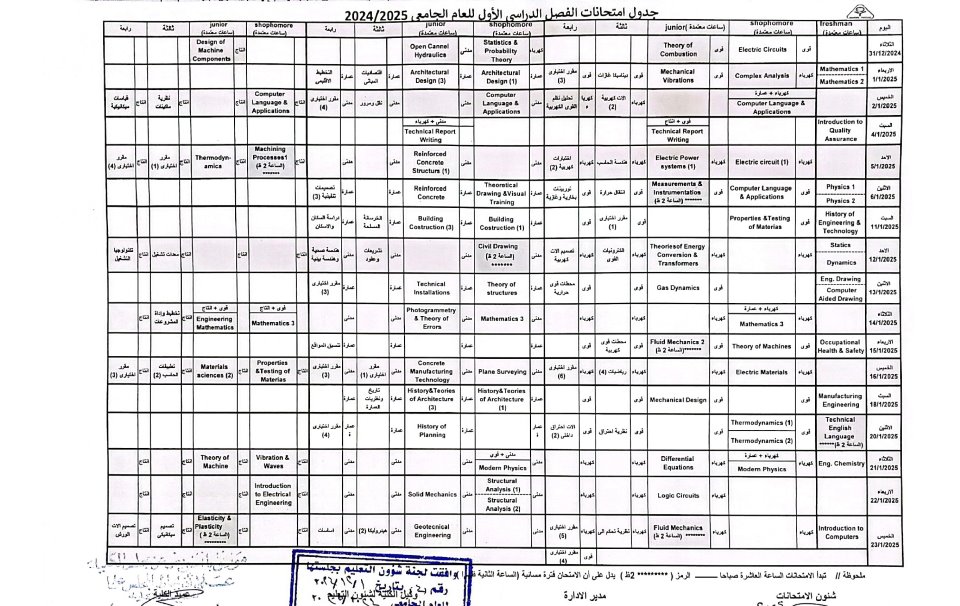 جدول امتحانات الفصل الدراسى الأول للعام الجامعى 2024/2025
اليوم freshman (ساعات معتمدة) shophomore (ساعات معتمدة) junior (ساعات معتمدة) ثالثة رابعة shophomore (ساعات معتمدة) junior (ساعات معتمدة) ثالثة رابعة shophomore (ساعات معتمدة) junior (ساعات معتمدة) ثالثة رابعة
الثلاثاء 31/12/2024
قوى Electric Circuits
قوى Theory of Combustion
كهرباء
Statistics & Probability Theory
مدنى Open Cannel Hydraulics
انتاج
Design of Machine Components
الاربعاء 1/1/2025
Mathematics 1
Mathematics 2
كهرباء Complex Analysis
قوى Mechanical Vibrations
قوى ديناميكا غازات
قوى مقرر اختيارى (3)
عمارة Architectural Design (1)
عمارة Architectural Design (3)
عمارة
عمارة التخطيط الاقليمى
الخميس 2/1/2025
كهرباء + عمارة
Computer Language & Applications
كهرباء الات كهربية (2)
تحليل نظم القوى الكهربية
مدنى Computer Language & Applications
مدنى نقل ومرور
مدنى مقرر اختيارى (4)
انتاج Computer Language & Applications
انتاج نظرية ماكينات
انتاج قياسات ميكانيكية
السبت 4/1/2025
Introduction to Quality Assurance
قوى + انتاج
Technical Report Writing
مدنى + كهرباء
Technical Report Writing
الاحد 5/1/2025
كهرباء Electric circuit (1)
كهرباء Electric Power systems (1)
كهرباء هندسة الحاسب
كهرباء اختبارات كهربية (2)
مدنى Reinforced Concrete Structurs (1)
مدنى
انتاج Machining Processes1 (الساعة 2 ظ) *******
انتاج Thermodyn-amics
انتاج مقرر اختيارى (1)
انتاج مقرر اختيارى (4)
الاثنين 6/1/2025
Physics 1
Physics 2
قوى Computer Language &Applications
قوى Measurements & Instrumentatios (الساعة 2 ظ) *******
قوى انتقال حرارة
قوى توربينات بخارية وغازية
عمارة Theoretical Drawing &Visual Training
عمارة Reinforced Concrete
عمارة
عمارة تصميمات تنفيذية (3)
السبت 11/1/2025
History of Engineering & Technology
قوى Properties &Testing of Materias
قوى
قوى مقرر اختيارى (1)
قوى
عمارة Building Costruction (1)
عمارة Building Costruction (3)
عمارة الخرسانة المسلحة
عمارة دراسة السكان والاسكان
الاحد 12/1/2025
Statics
Dynamics
كهرباء
كهرباء Theoriesof Energy Conversion & Transformers
كهرباء الكترونيات القوى
كهرباء تصميم الات كهربية
مدنى Civil Drawing (الساعة 2 ظ) *******
مدنى
مدنى تشريعات وعقود
مدنى هندسة صحية وهندسة بيئية
انتاج
انتاج
انتاج معدات تشغيل
انتاج تكنولوجيا التشغيل
الاثنين 13/1/2025
Eng. Drawing
Computer Aided Drawing
قوى
قوى Gas Dynamics
قوى
قوى محطات قوى حرارية
عمارة Theory of structures
عمارة Technical Installations
عمارة
عمارة مقرر اختيارى (3)
الثلاثاء 14/1/2025
كهرباء + عمارة
Mathematics 3
كهرباء
كهرباء
كهرباء
مدنى Mathematics 3
مدنى Photogrammetry & Theory of Errors
مدنى
مدنى
قوى + انتاج
Mathematics 3
قوى + انتاج
Engineering Mathematics
انتاج تخطيط وادأة المشروعات
انتاج
الاربعاء 15/1/2025
Occupational Health & Safety
قوى Theory of Machines
قوى Fluid Mechanics 2 (الساعة 2 ظ)*******
قوى محطات قوى كهربية
قوى
عمارة
عمارة
عمارة
عمارة تنسيق المواقع
الخميس 16/1/2025
كهرباء Electric Materials
كهرباء
كهرباء رياضيات (4)
كهرباء مقرر اختيارى (6)
مدنى Plane Surveying
مدنى Concrete Manufacturing Technology
مدنى مقرر اختيارى (1)
مدنى مقرر اختيارى (3)
انتاج Properties &Testing of Materias
انتاج Materials sciences (2)
انتاج تطبيقات الحاسب (2)
انتاج مقرر اختيارى (3)
السبت 18/1/2025
Manufacturing Engineering
قوى
قوى Mechanical Design
قوى
قوى
عمارة History&Teories of Architecture (1)
عمارة History&Teories of Architecture (3)
عمارة تاريخ ونظريات العمارة
عمارة
الاثنين 20/1/2025
Technical English Language (الساعة 2 ظ)******
قوى Thermodynamics (1)
Thermodynamics (2)
قوى
قوى نظرية احتراق
قوى الات احتراق داخلى (2)
عمارة
عمارة History of Planning
عمارة
عمارة مقرر اختيارى (4)
الثلاثاء 21/1/2025
Eng. Chemistry
كهرباء + عمارة
Modern Physics
كهرباء Differential Equations
كهرباء
كهرباء
مدنى + قوى
Modern Physics
مدنى
مدنى
مدنى
انتاج Vibration & Waves
انتاج Theory of Machine
انتاج
انتاج
الاربعاء 22/1/2025
كهرباء
كهرباء Logic Circuits
كهرباء
كهرباء
مدنى Structural Analysis (1)
Structural Analysis (2)
مدنى Solid Mechanics
مدنى
مدنى
انتاج Introduction to Electrical Engineering
انتاج
انتاج
انتاج
الخميس 23/1/2025
Introduction to Computers
كهرباء
كهرباء Fluid Mechanics (الساعة 2 ظ) *******
كهرباء نظرية تحكم الى
كهرباء مقرر اختيارى (5)
مدنى
مدنى Geotecnical Engineering
مدنى هيدروليكا (2)
مدنى اساسات
انتاج
انتاج Elasticity & Plasticity (الساعة 2 ظ) *******
انتاج تصميم ميكانيكى
انتاج تصميم الات الورش
قوى مقرر اختيارى (4)
ملحوظة // تبدأ الامتحانات الساعة العاشرة صباحا ــــ الرمز ( ********* 2ظ) يدل على أن الامتحان فترة مسائية (الساعة الثانية ظهرا )
وافقت لجنة شؤون التعليم بجلستها
رقم بتاريخ
للعام الجامعى
شئون الامتحانات
مدير الادارة
وكيل الكلية لشئون التعليم
عميد الكلية